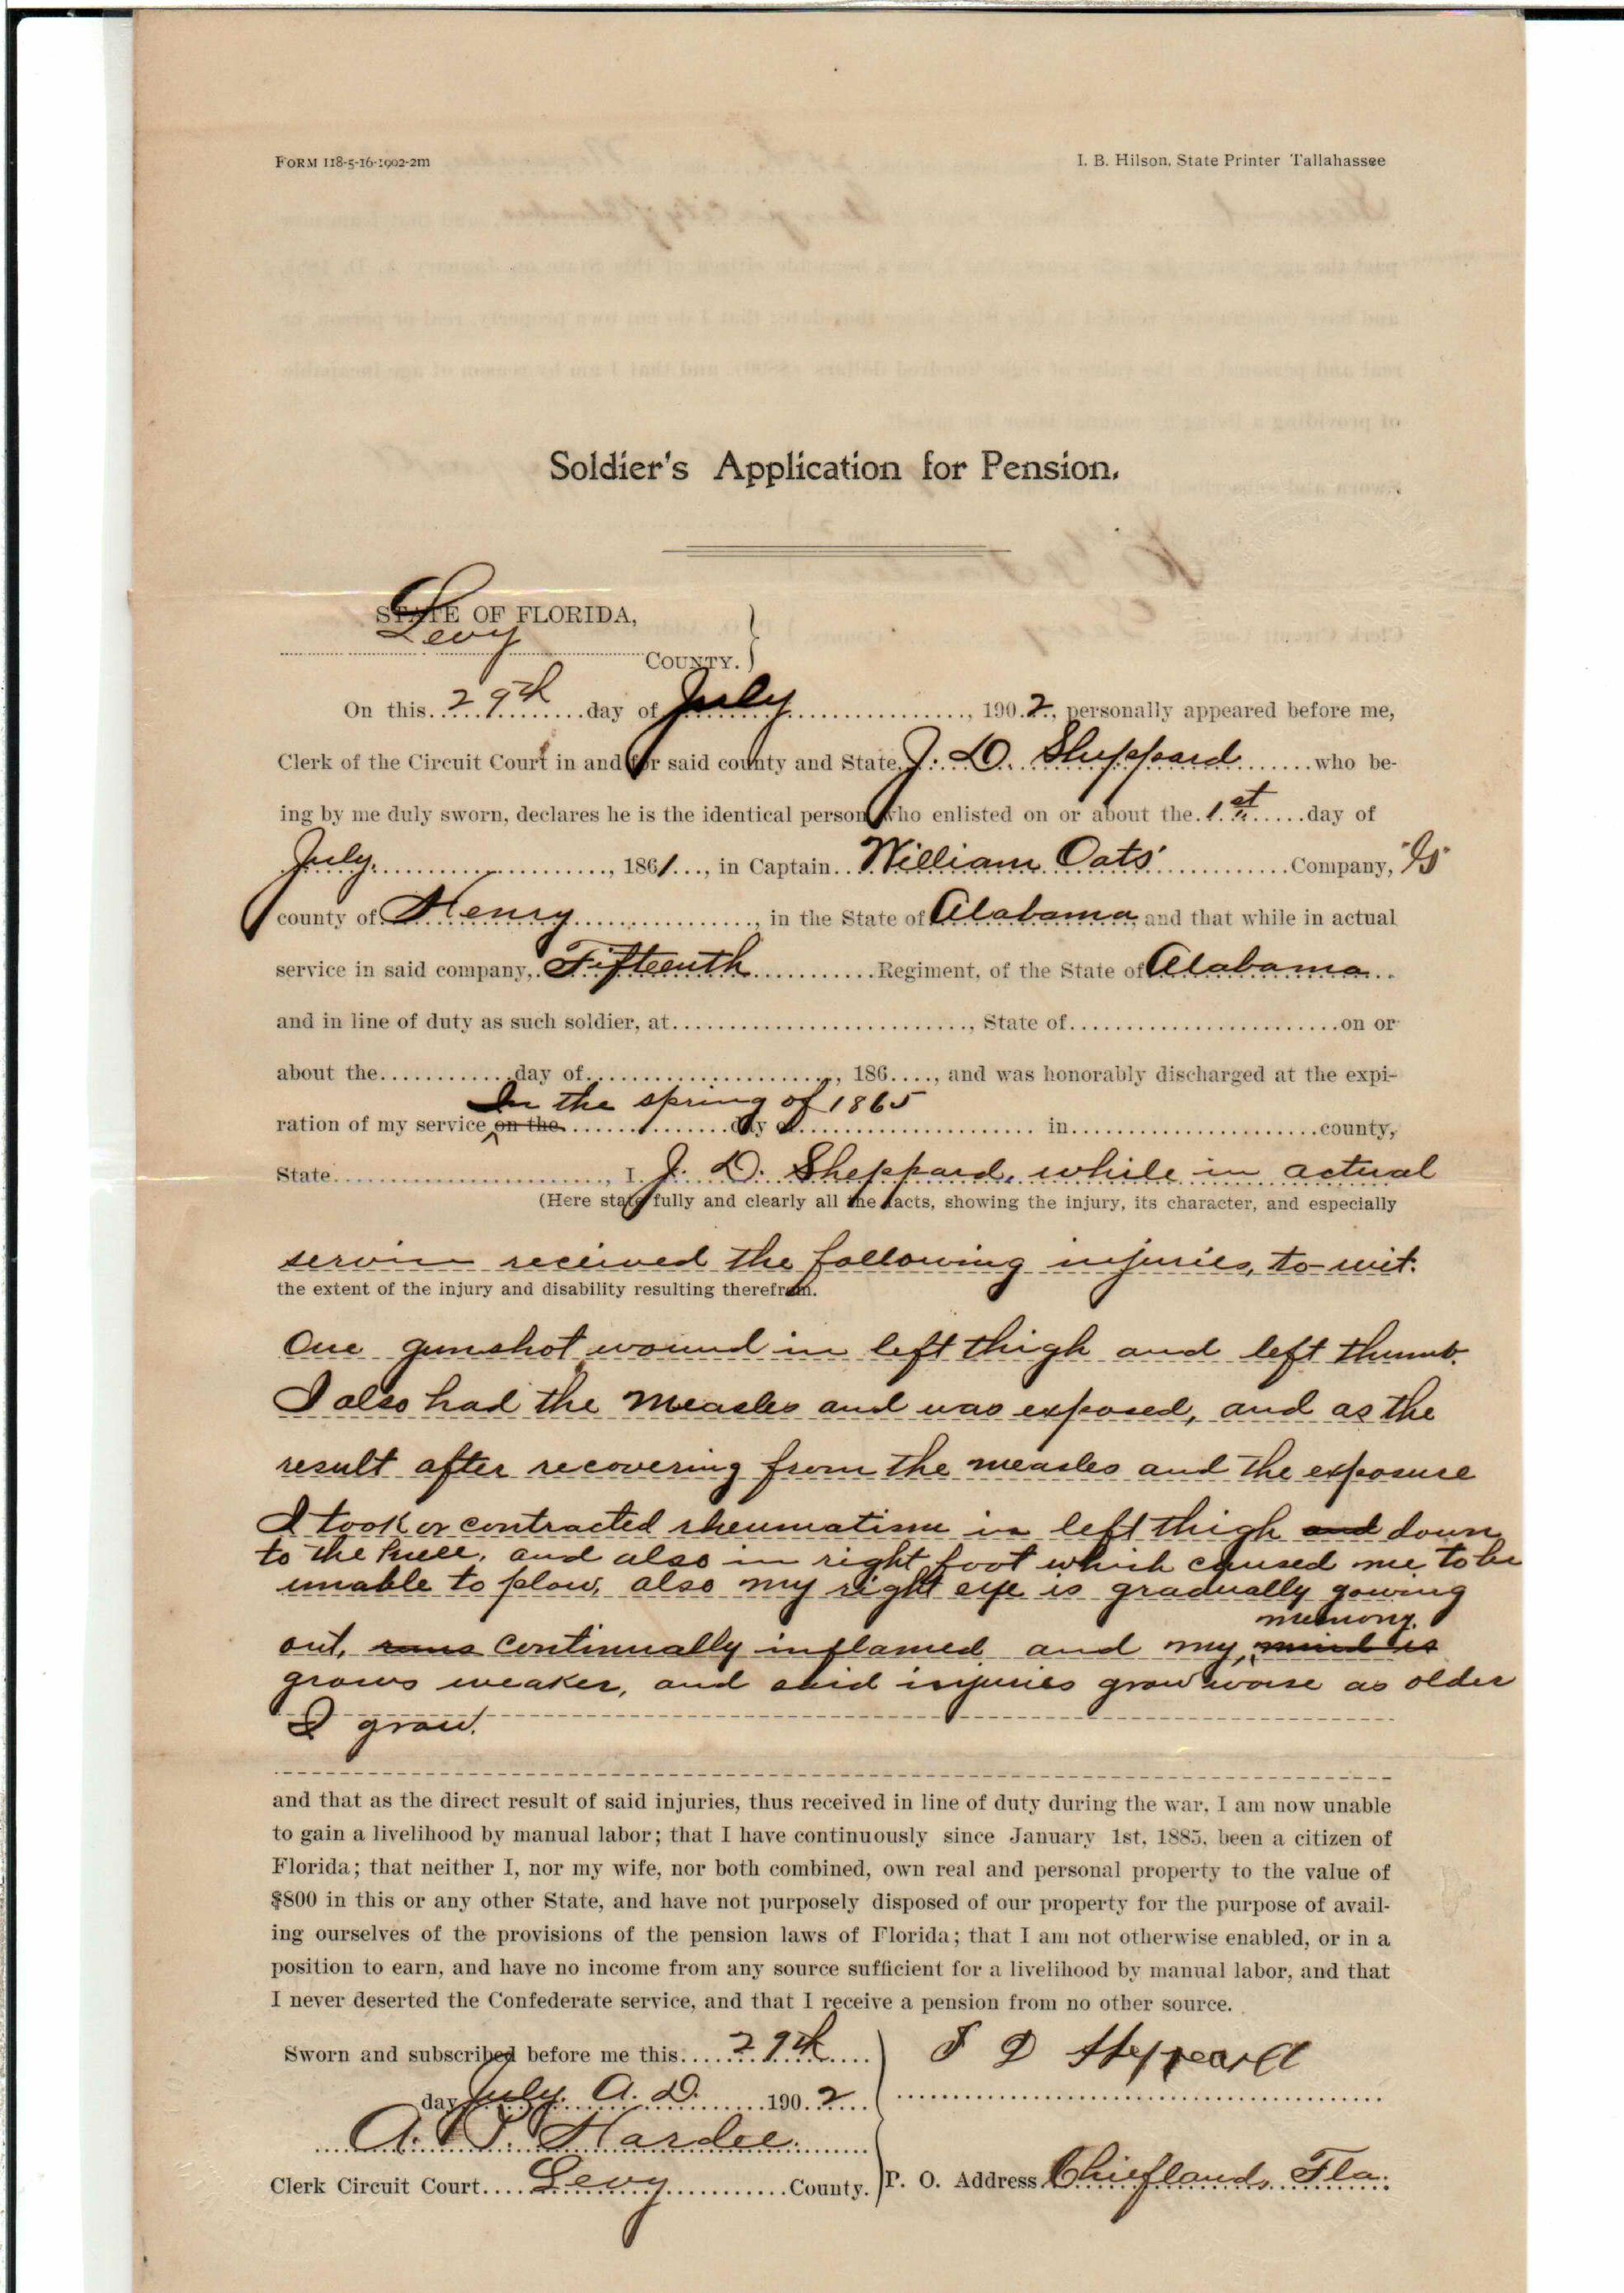 FORM 118-5-16-1902-2m
I. B. Hilson, State Printer Tallahassee
Soldier's Application for Pension.
STATE OF FLORIDA,
Levy COUNTY.
On this 29th day of July, 1902, personally appeared before me,
Clerk of the Circuit Court in and for said county and State, J. D. Sheppard who be-
ing by me duly sworn, declares he is the identical person who enlisted on or about the 1st day of
July, 1861, in Captain William Oats' Company, "G"
county of Henry, in the State of Alabama, and that while in actual
service in said company, Fifteenth Regiment, of the State of Alabama
and in line of duty as such soldier, at, State of on or
about the day of, 186, and was honorably discharged at the expi-
In the spring of 1865
ration of my service on the day of in county,
State, I J. D. Sheppard, while in actual
(Here state fully and clearly all the facts, showing the injury, its character, and especially
service received the following injuries, to-wit:
the extent of the injury and disability resulting therefrom.
One gunshot wound in left thigh and left thumb.
I also had the measles and was exposed, and as the
result after recovering from the measles and the exposure
I took or contracted rheumatism in left thigh and down
to the knee, and also in right foot which caused me to be
unable to plow, also my right eye is gradually gowing
memory
out, runs continually inflamed and my mind is
grows weaker, and said injuries grow worse as older
I grow.
and that as the direct result of said injuries, thus received in line of duty during the war, I am now unable
to gain a livelihood by manual labor; that I have continuously since January 1st, 1885, been a citizen of
Florida; that neither I, nor my wife, nor both combined, own real and personal property to the value of
$800 in this or any other State, and have not purposely disposed of our property for the purpose of avail-
ing ourselves of the provisions of the pension laws of Florida; that I am not otherwise enabled, or in a
position to earn, and have no income from any source sufficient for a livelihood by manual labor, and that
I never deserted the Confederate service, and that I receive a pension from no other source.
Sworn and subscribed before me this 29th
J D Sheppard
day July A. D. 1902
A. P. Hardee
Clerk Circuit Court Levy County.
P. O. Address Chiefland, Fla.